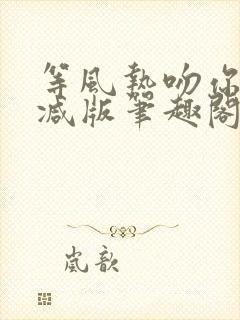 等风热吻你
减版笔趣阁
岚歆